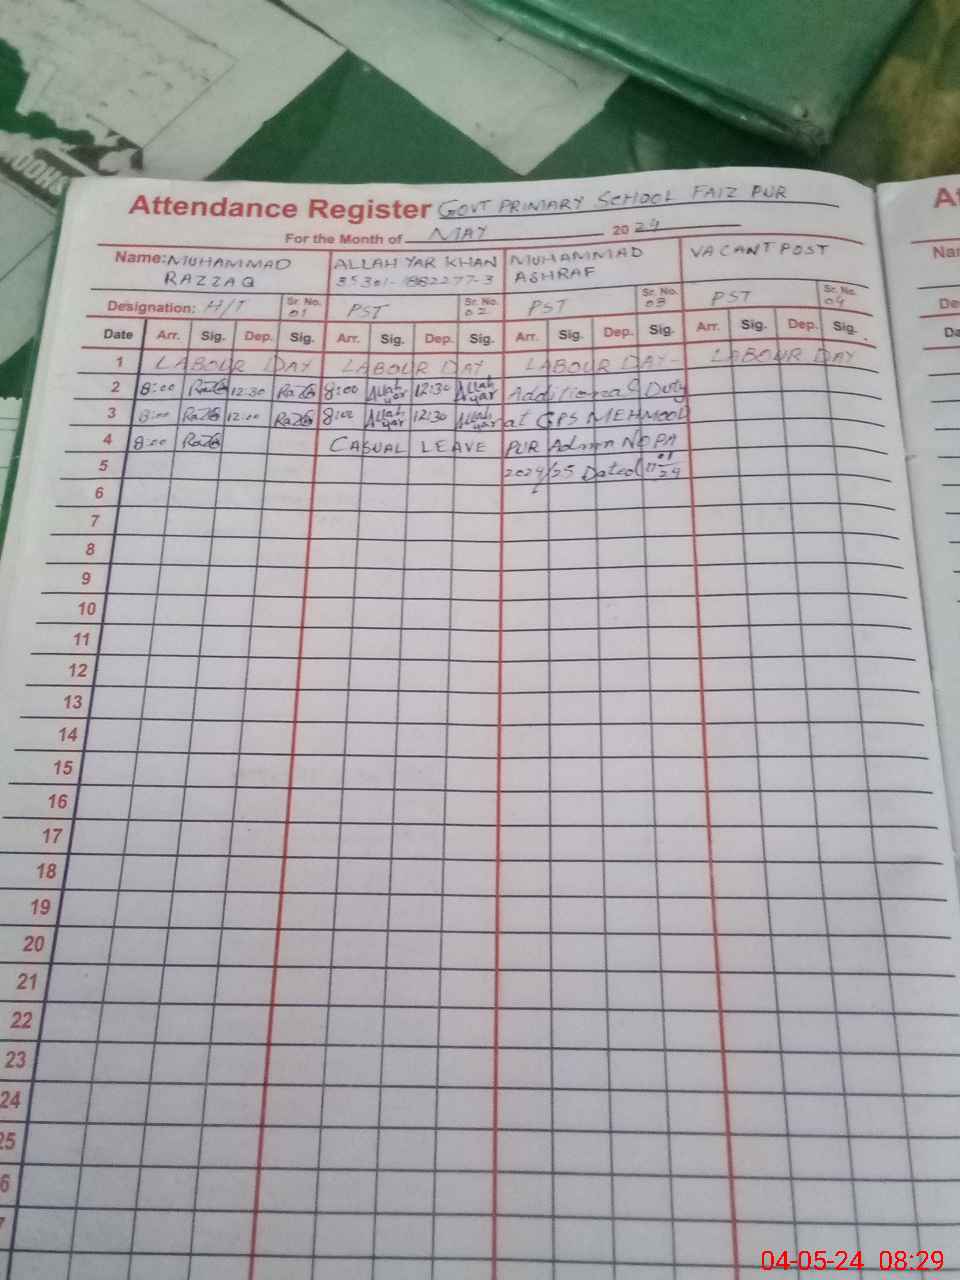 Attendance Register GOVT PRIMARY SCHOOL FAIZ PUR
For the Month of MAY 2024
Name: MUHAMMAD RAZZAQ ALLAH YAR KHAN 35301- MUHAMMAD ASHRAF VACANT POST
Designation: H/T Sr. No. 01 PST Sr. No. 02 PST Sr. No. 03 PST Sr. No. 04
Date Arr. Sig. Dep. Sig. Arr. Sig. Dep. Sig. Arr. Sig. Dep. Sig. Arr. Sig. Dep. Sig.
1 LABOUR DAY LABOUR DAY LABOUR DAY LABOUR DAY
2 8:00 12:30 8:00 Allah yar 12:30 Allah yar Additional Duty
3 8:00 12:00 8:00 Allah yar 12:30 Allah yar at GPS MEHMOOD
4 8:00 CASUAL LEAVE PUR Admn NO PA
5 2024/25 Dated
6
7
8
9
10
11
12
13
14
15
16
17
18
19
20
21
22
23
24
25
6
7
04-05-24 08:29